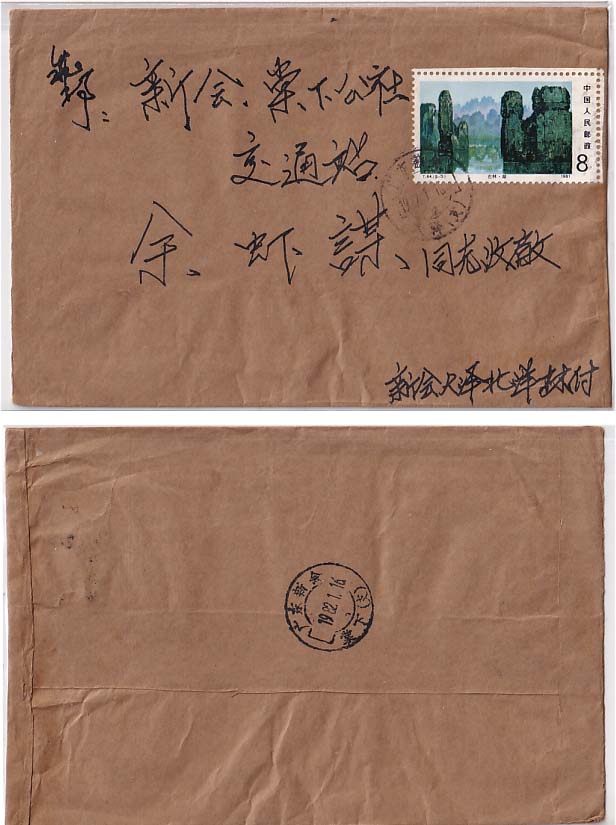 新会、棠下公社
交通站
余、虾謀、同志收啟
新会大泽北洋村付
中国人民邮政
8
T.64.(5-5)
石林·湖
1981
广东新会
1982.1.16
棠下